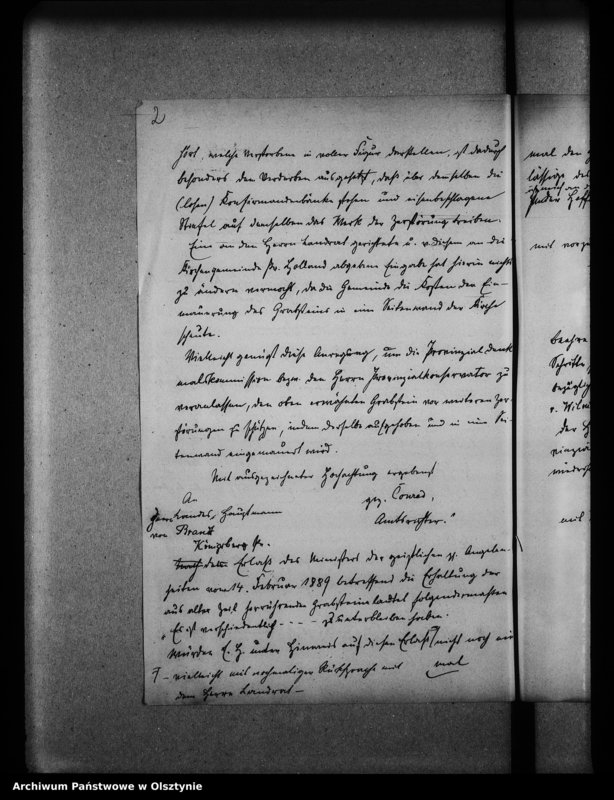 2
hört, welche Verstorbene in voller Figur darstellen, ist dadurch
besonders dem Verderben ausgesetzt, daß über denselben die
(losen) Konfirmandenbänke stehen und eisenbeschlagene
Stiefel auf demselben das Werk der Zerstörung treiben.
Eine an den Herrn Landrat gerichtete u. v. diesem an die
Kirchengemeinde Pr. Holland abgegebene Eingabe hat hierin nichts
zu ändern vermocht, da die Gemeinde die Kosten der Ein-
mauerung des Grabsteins in eine Seitenwand der Kirche
scheute.
Vielleicht genügt diese Anregung, um die Provinzial-Denk-
malskommission bezw. den Herrn Provinzialkonservator zu
veranlassen, den oben erwähnten Grabstein vor weiteren Zer-
störungen zu schützen, indem derselbe aufgehoben und in eine Sei-
tenwand eingemauert wird.
Mit ausgezeichneter Hochachtung ergebenst
An
gez. Conrad,
Herrn Landes-Hauptmann
Amtsrichter."
von Brandt
Königsberg Pr.
Erlaß des Ministers der geistlichen pp. Angelegen-
heiten vom 14. Februar 1889 betreffend die Erhaltung der
aus alter Zeit herrührenden Grabsteine lautet folgendermaßen
"Es ist verschiedentlich - - - - zu unterbleiben haben.
Würden E. H. unter Hinweis auf diesen Erlaß nicht noch ein
mal
- vielleicht mit nochmaliger Rücksprache mit
dem Herrn Landrat -
mal den
lässige des
mit vorzü
beehre
Schritte
bezügl
der
wieder
mit
Archiwum Państwowe w Olsztynie